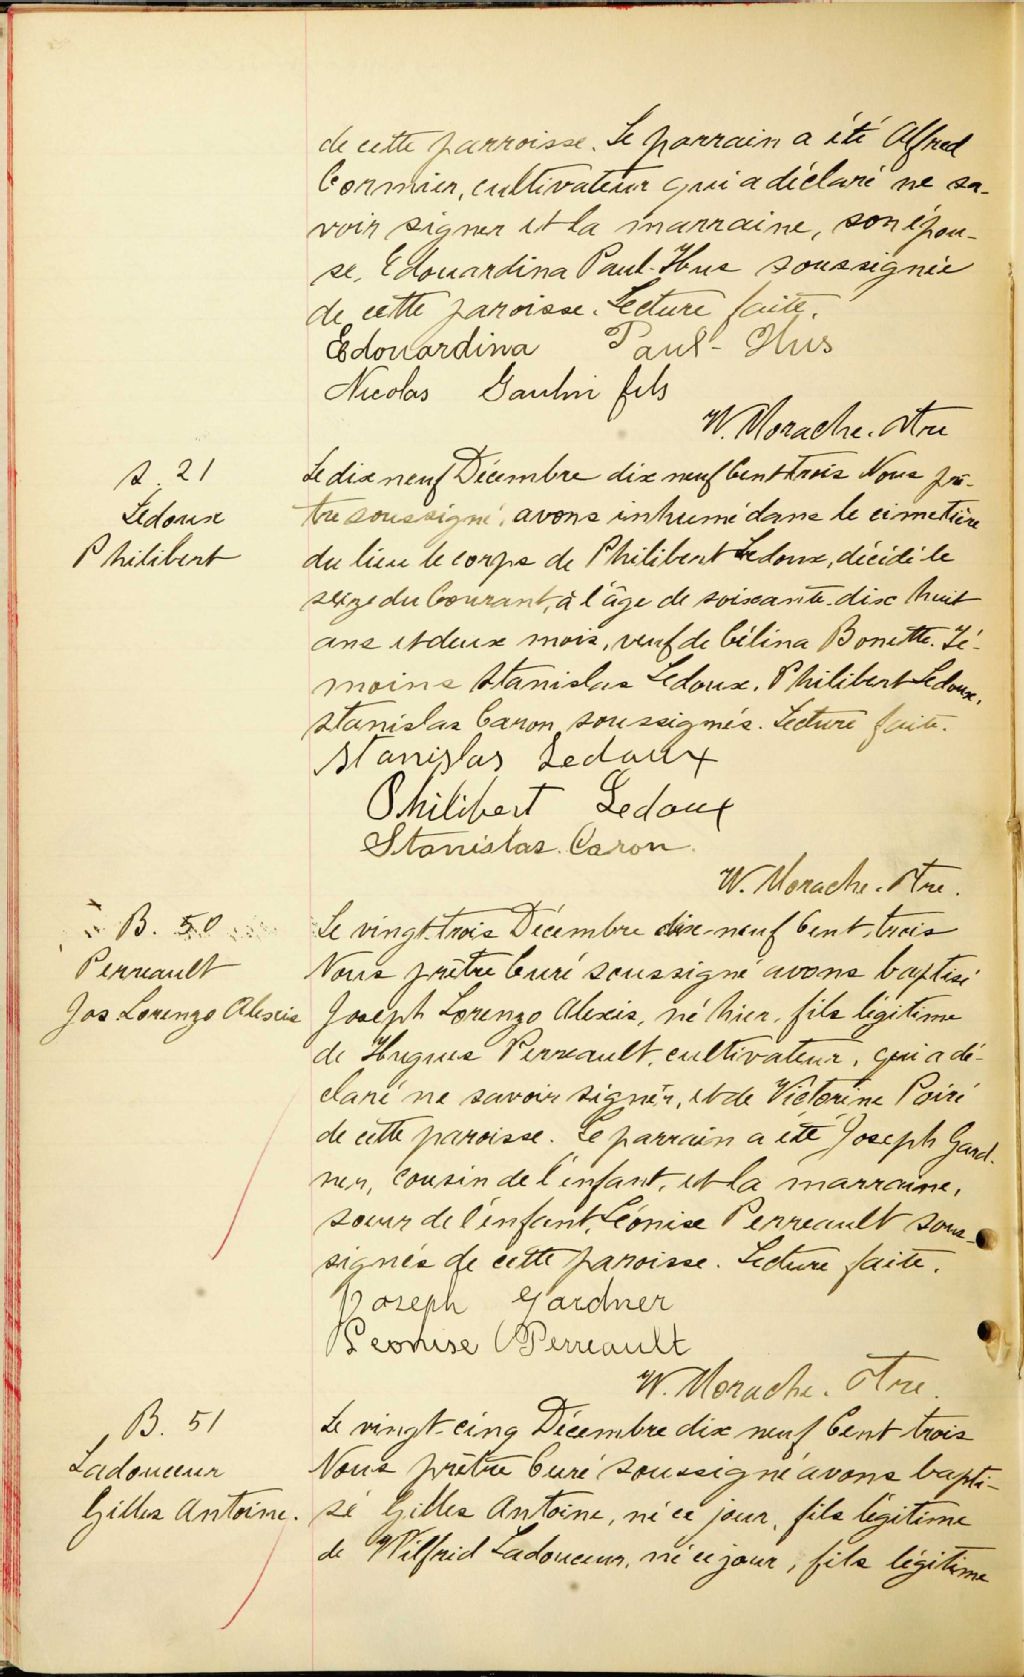 de cette parroisse. Le parrain a été Alfred
Cormier, cultivateur qui a déclaré ne sa-
voir signer et la marraine, son épou-
se, Edouardina Paul-Hus soussignée
de cette paroisse. Lecture faite.
Edouardina Paul-Hus
Nicolas Gaulin fils
W. Morache. Ptre
S. 21
Ledoux
Philibert
Le dix neuf Décembre dix neuf Cent trois Nous prê-
tre soussigné, avons inhumé dans le cimetière
du lieu le corps de Philibert Ledoux, décédé le
seize du Courant, à l'âge de soixante-dix huit
ans et deux mois, veuf de Célina Bonette. Té-
moins Stanislas Ledoux, Philibert Ledoux,
Stanislas Caron soussignés. Lecture faite.
Stanislas Ledoux
Philibert Ledoux
Stanislas Caron
W. Morache. Ptre.
B. 50
Perreault
Jos Lorenzo Alexis
Le vingt-trois Décembre dix-neuf Cent trois
Nous prêtre Curé soussigné avons baptisé
Joseph Lorenzo Alexis, né hier, fils légitime
de Hugues Perreault, cultivateur, qui a dé-
claré ne savoir signer, et de Victorine Poiré
de cette paroisse. Le parrain a été Joseph Gard-
ner, cousin de l'enfant, et la marraine,
soeur de l'enfant, Léonise Perreault sous-
signés de cette paroisse. Lecture faite.
Joseph Gardner
Leonise Perreault
W. Morache. Ptre.
B. 51
Ladouceur
Gilles Antoine.
Le vingt-cinq Décembre dix neuf Cent trois
Nous prêtre Curé soussigné avons bapti-
sé Gilles Antoine, né ce jour, fils légitime
de Wilfrid Ladouceur, né ce jour, fils légitime